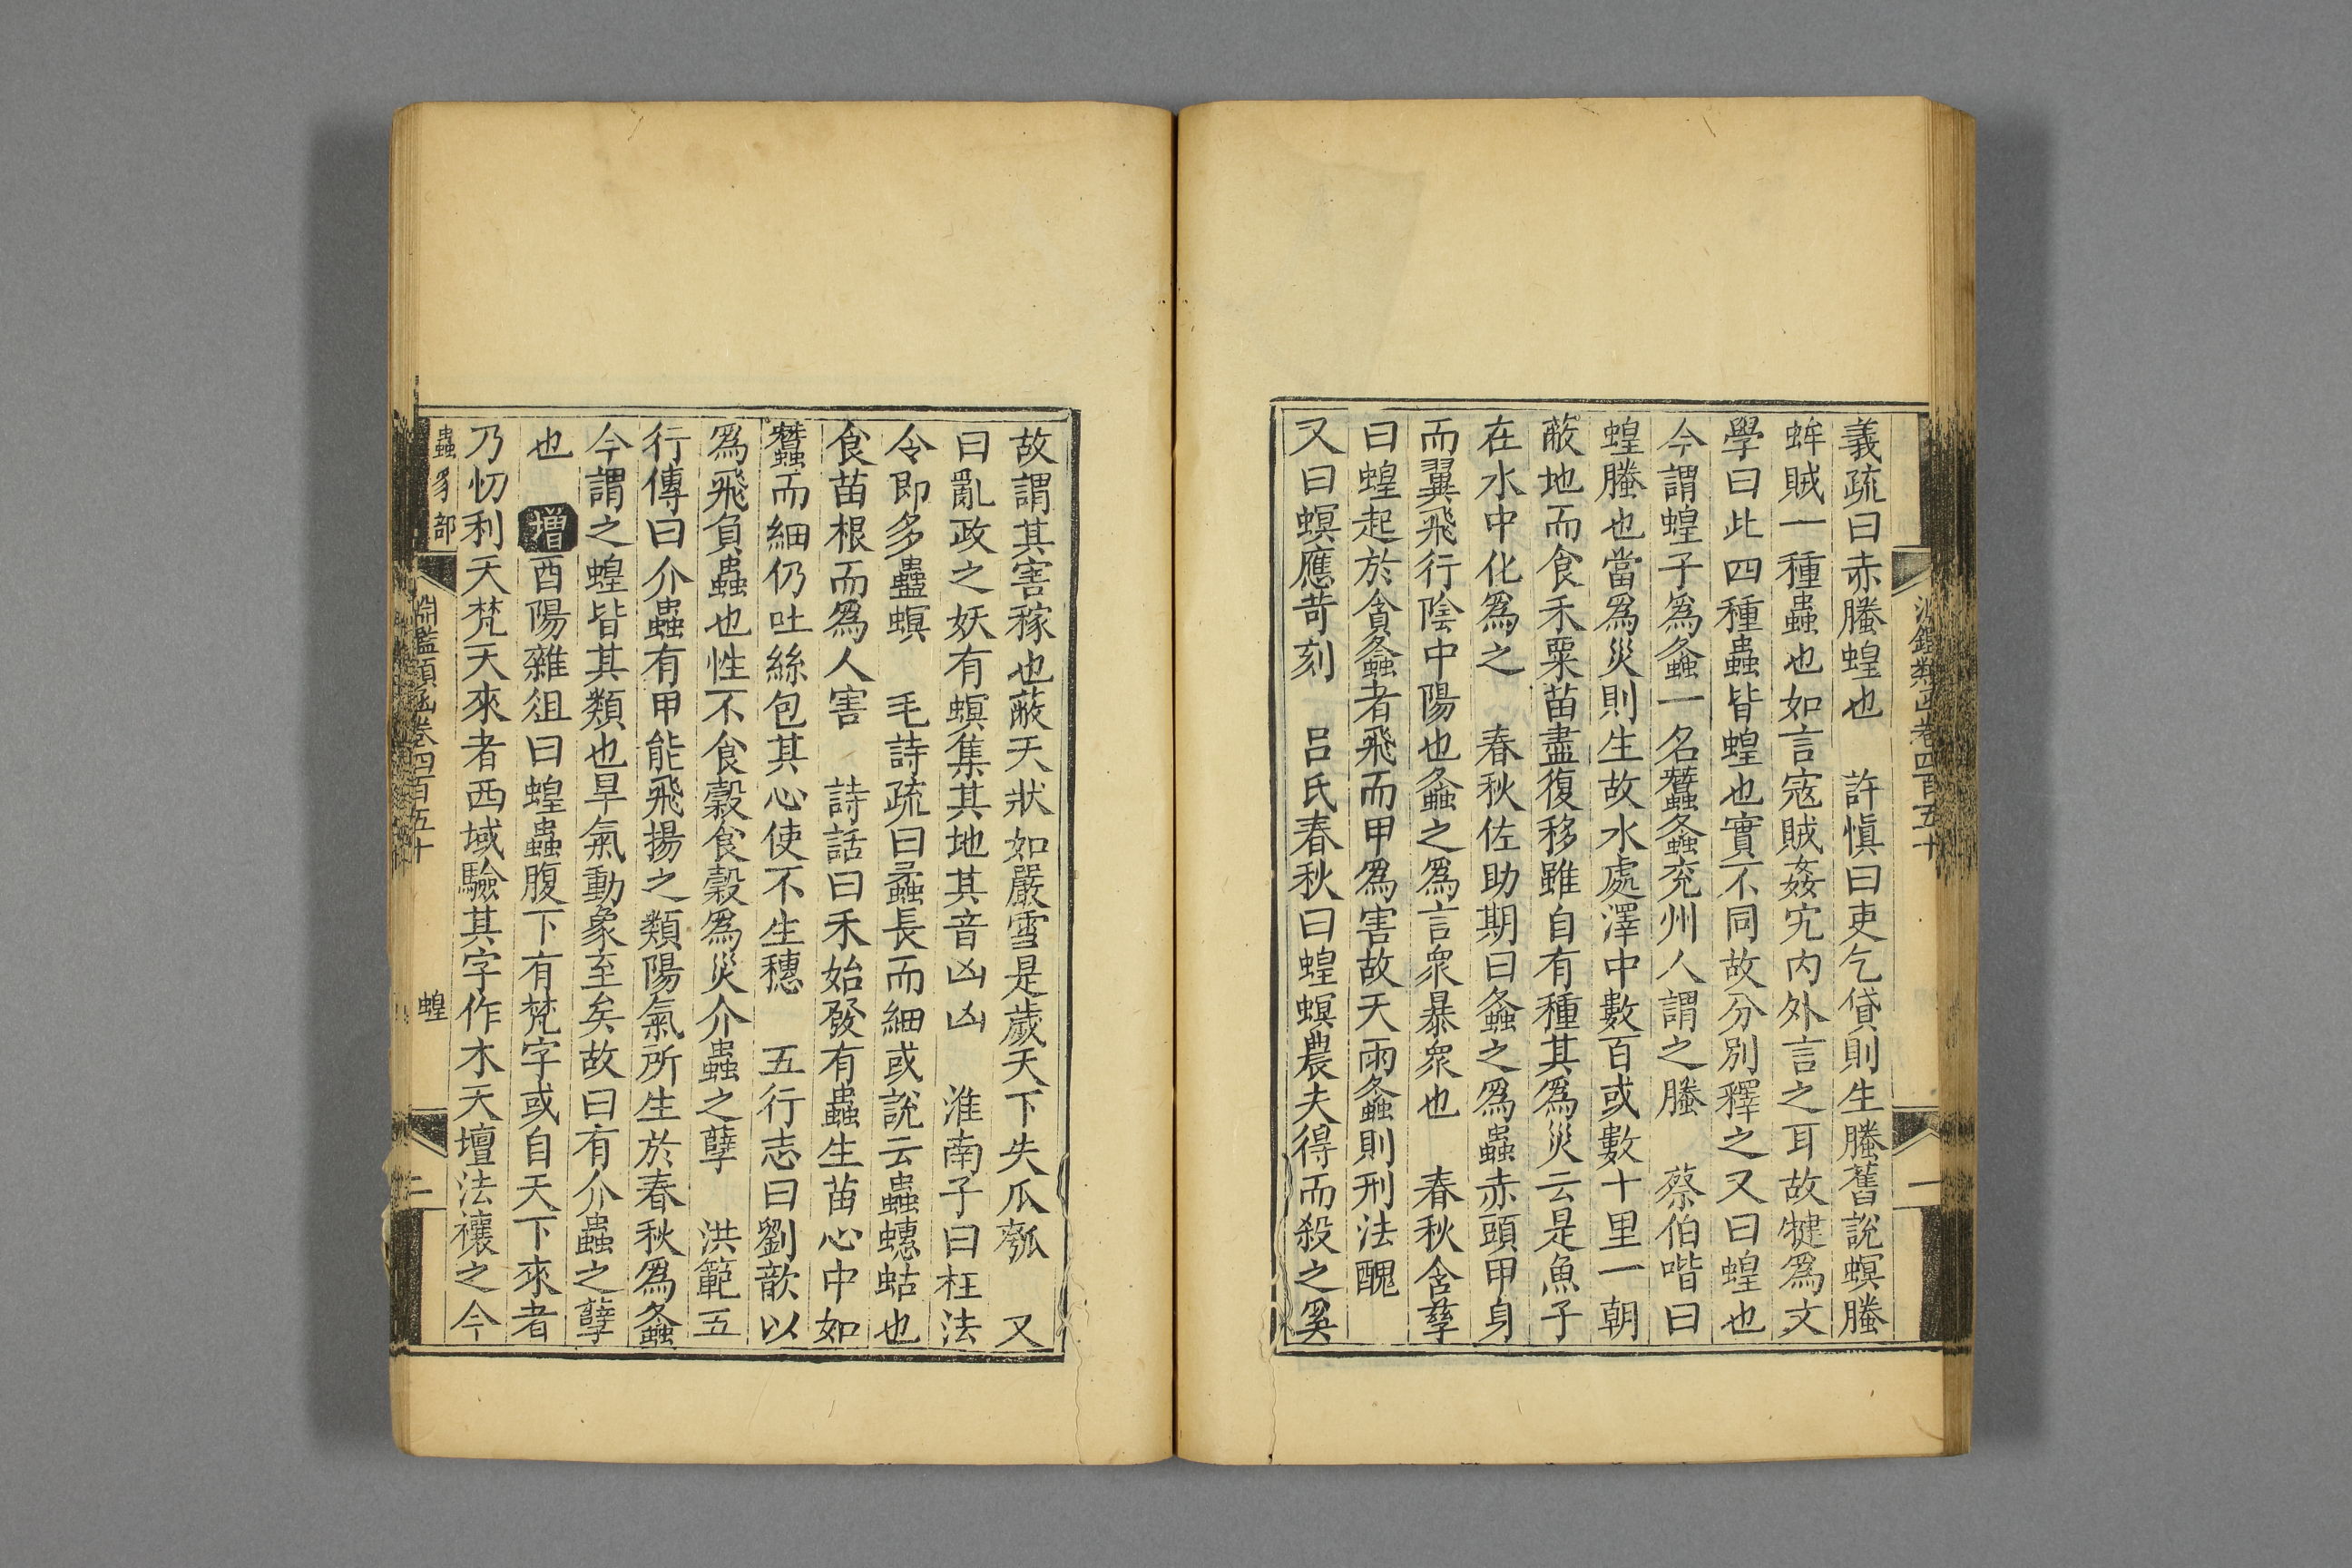 淵鑑類函卷四百五十
一
義疏曰赤螣蝗也　許愼曰吏乞貸則生螣舊說螟螣
蛑賊一種蟲也如言寇賊姦宄內外言之耳故犍爲文
學曰此四種蟲皆蝗也實不同故分別釋之又曰蝗也
今謂蝗子爲螽一名蠶螽兖州人謂之螣　蔡伯喈曰
蝗螣也當爲災則生故水處澤中數百或數十里一朝
蔽地而食禾粟苗盡復移雖自有種其爲災云是魚子
在水中化爲之　春秋佐助期曰螽之爲蟲赤頭甲身
而翼飛行陰中陽也螽之爲言衆暴衆也　春秋含孳
曰蝗起於貪螽者飛而甲爲害故天雨螽則刑法醜
又曰螟應苛刻　呂氏春秋曰蝗螟農夫得而殺之奚
故謂其害稼也蔽天狀如嚴雪是歲天下失瓜瓠　又
曰亂政之妖有螟集其地其音凶凶　淮南子曰枉法
令卽多蟲螟　毛詩疏曰蟊長而細或說云蟲蟪蛄也
食苗根而爲人害　詩話曰禾始發有蟲生苗心中如
蠶而細仍吐絲包其心使不生穗　五行志曰劉歆以
爲飛負蟲也性不食穀食穀爲災介蟲之孽　洪範五
行傳曰介蟲有甲能飛揚之類陽氣所生於春秋爲螽
今謂之蝗皆其類也旱氣動象至矣故曰有介蟲之孽
也　增酉陽雜俎曰蝗蟲腹下有梵字或自天下來者
乃忉利天梵天來者西域驗其字作木天壇法禳之今
蟲豸部
淵鑑類函卷四百五十
蝗
二